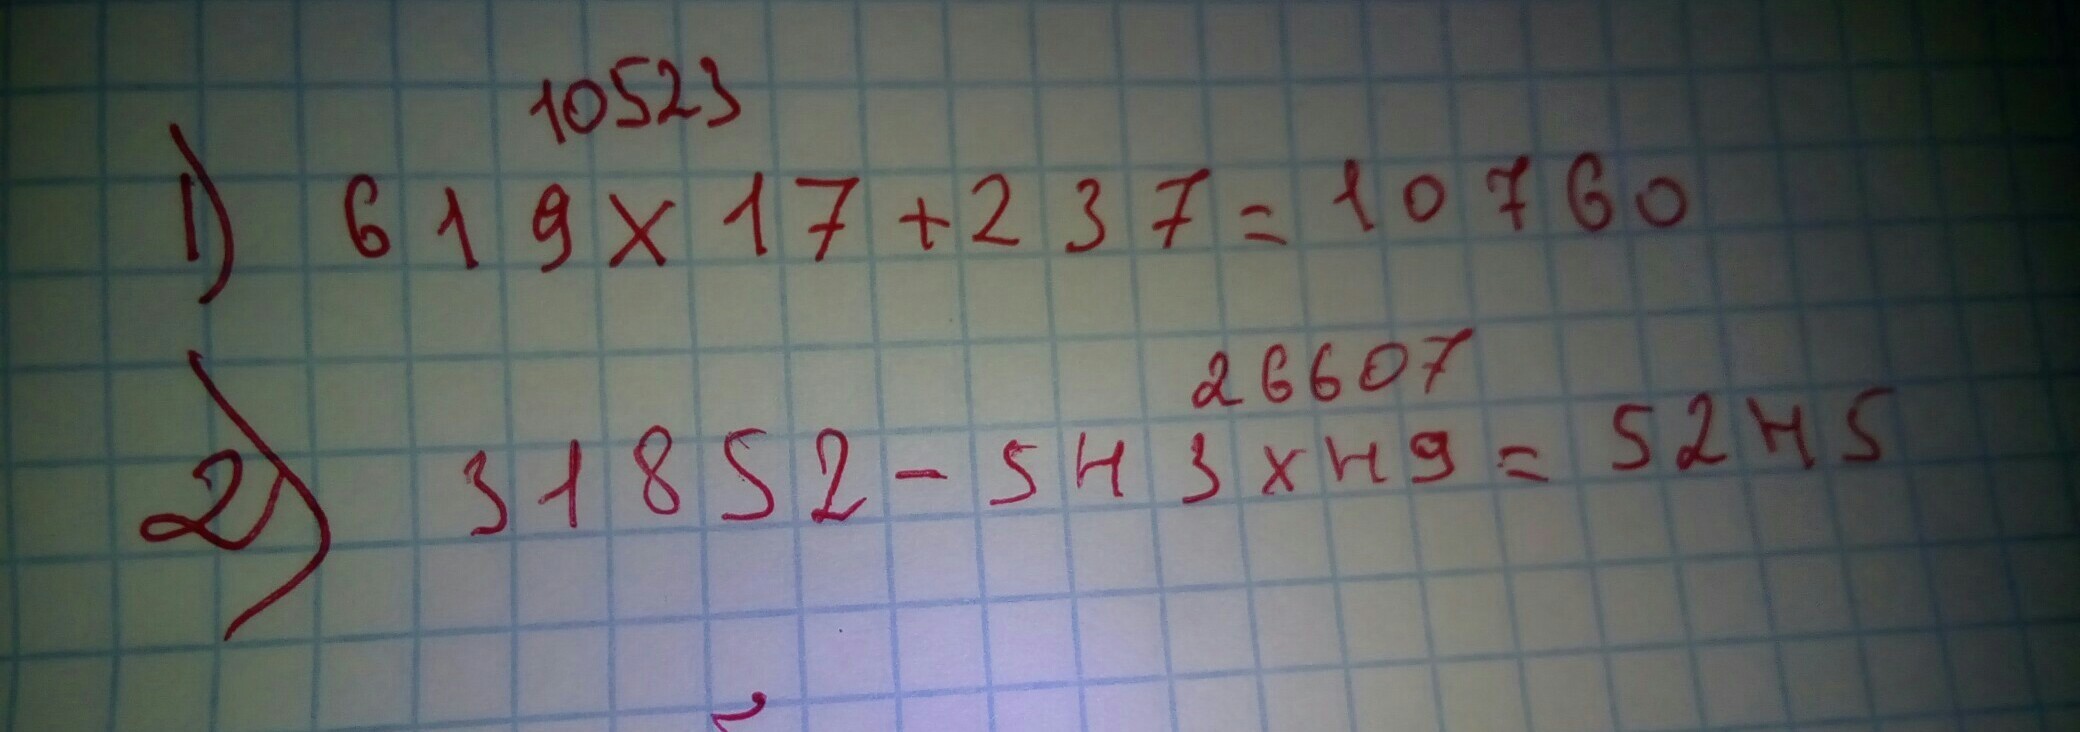 10523
1) 619x17+237=10760
26607
2) 31852-543x49=5245